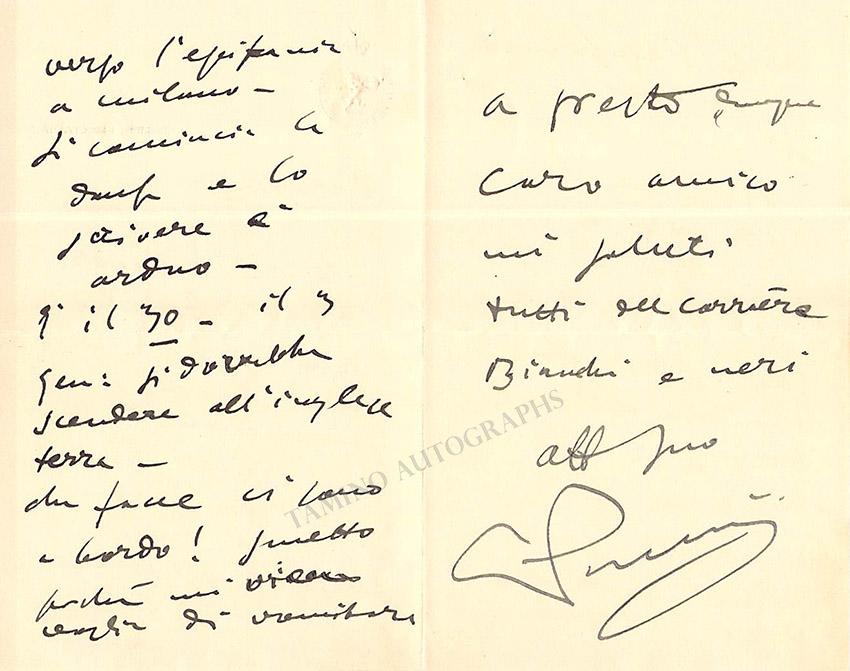 verso l'epifania
a milano —
si comincia la
danza e lo
scrivere è
arduo —
è il 30 — il 3
gen: si dovrebbe
scendere all'inglese
terra —
che facce ci sono
a bordo! smetto
perché mi viene
voglia di vomitare
a presto dunque
caro amico
mi saluti
tutti del Corriere
Bianchi e neri
aff suo
GPuccini
TAMINO AUTOGRAPHS